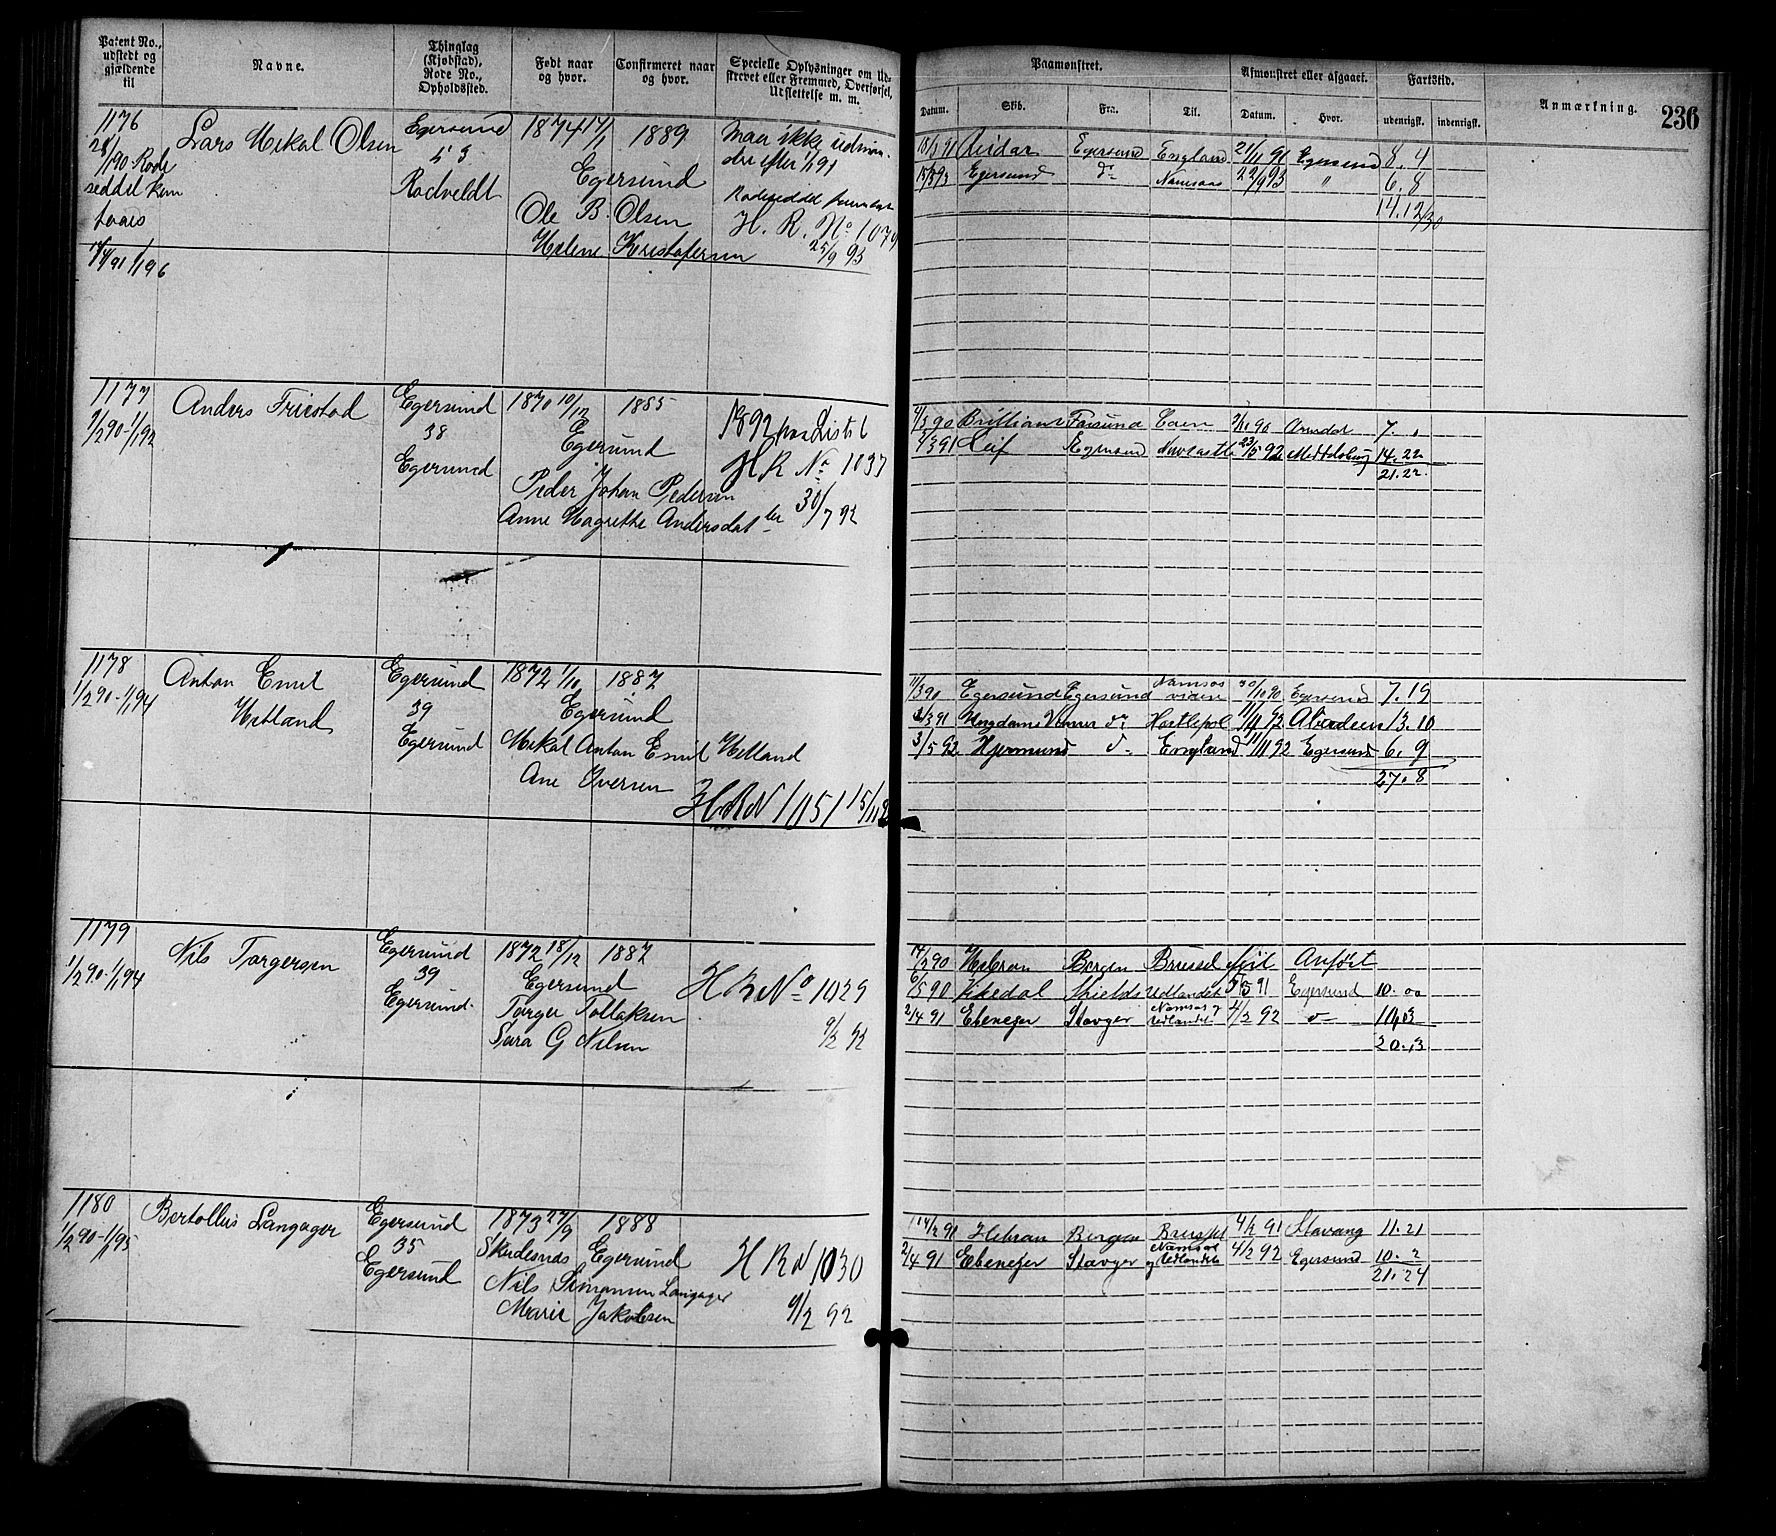 Patent No., udstedt og gjældende til
Navne.
Thinglag (Kjøbstad), Rode No., Opholdssted.
Født naar og hvor.
Confirmeret naar og hvor.
Specielle Oplysninger om Udskrevet eller Fremmed, Overførsel, Udslettelse m. m.
Paamønstret.
Datum. Skib. Fra. Til.
Afmønstret eller afgaaet.
Datum. Hvor.
Fartstid.
udenrigsk. indenrigsk.
Anmærkning.
236
1176
Lars Mikal Olsen
Egersund
53
Rodveldt
1874 17/1
1889
Egersund
Ole B. Olsen
Helene Kristofersen
Maa ikke udmøn-
stre efter 1/1 91
H. R. No 1079
25/9 93
Reidar Egersund England 21/11 91 Egersund 8. 4
15/3 93 Egersund do Namsos 22/9 93 " 6. 8
14. 12/30
1177
1/2 90 - 1/1 92
Anders Friestad
Egersund
38
Egersund
1870 10/12 1885
Egersund
Peder Johan Pedersen
Anne Magrethe Andersdatter
1892 paa Liste 1
H R No 1037
30/7 92
4/3 90 Brilliant Farsund
Arendal 7. ,
Leif Egersund 23/5 92 14. 22
21. 22
1178
1/2 90 - 1/1 94
Anton Emil
Hetland
Egersund
39
Egersund
1872 1/10 1887
Egersund
Mikal Anton Emil Hetland
Ane Iversen
HRN 1051 15/11 92
11/3 90 Egersund Egersund Namsos 30/10 90 Egersund 7. 19
2/3 91 Ungdoms Venner do Hartlepol 1/1 92 Aberdeen 13. 10
3/5 92 Hjermund do England 11/11 92 Egersund 6. 9
27. 8
1179
1/2 90 - 1/1 94
Nils Torgersen
Egersund
39
Egersund
1872 18/12 1887
Egersund
Torger Tollaksen
Sara G Nilsen
H R No 1029
9/2 92
14/2 90 Hebron Bergen Brussel feil Anført
6/5 90 Vikedal Shields Udlandet 5/5 91 Egersund 10. 00
2/4 91 Ebenezer Stavger Namsos & Udlandet 4/2 92 do 10. 13
20. 13
1180
1/2 90 - 1/1 95
Bertollus Langager
Egersund
35
Egersund
1873 27/9 1888
Skudesnæs Egersund
Nils Simonsen Langager
Marie Jakobsen
H R N 1030
9/2 92
14/2 91 Hebron Bergen Brussel 4/2 91 Stavang 11. 21
2/4 91 Ebenezer Stavger Namsos og Udlandet 4/2 92 Egersund 10. 2
21. 24